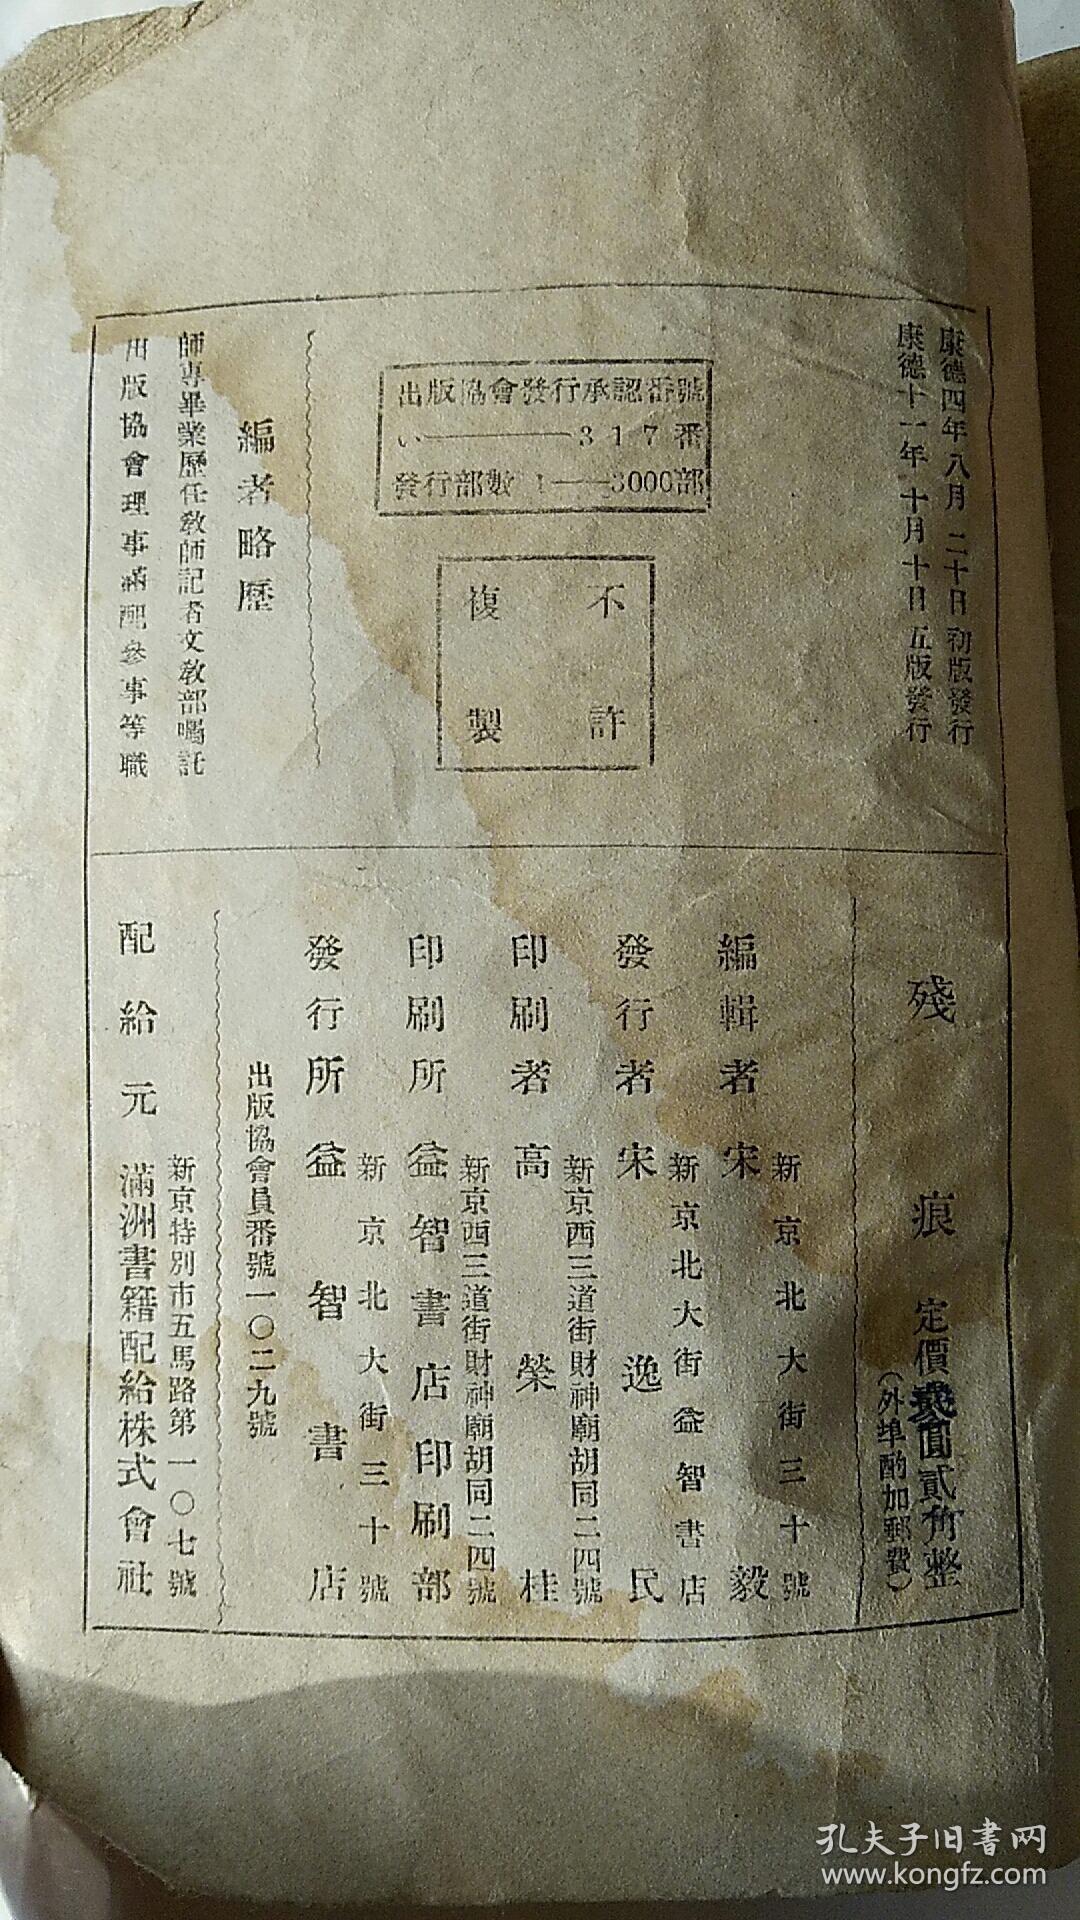 康德四年八月二十日初版發行
康德十一年十月十日五版發行
出版協會發行承認番號
い——317番
發行部數 1——3000部
不許
複製
編者略歷
師專畢業歷任教師記者文教部囑託
出版協會理事滿配參事等職
殘痕 定價 圓貳角整
(外埠酌加郵費)
新京北大街三十號
編輯者 宋毅
新京北大街益智書店
發行者 宋逸民
新京西三道街財神廟胡同二四號
印刷者 高榮桂
新京西三道街財神廟胡同二四號
印刷所 益智書店印刷部
新京北大街三十號
發行所 益智書店
出版協會員番號一〇二九號
新京特別市五馬路第一〇七號
配給元 滿洲書籍配給株式會社
孔夫子旧书网
www.kongfz.com